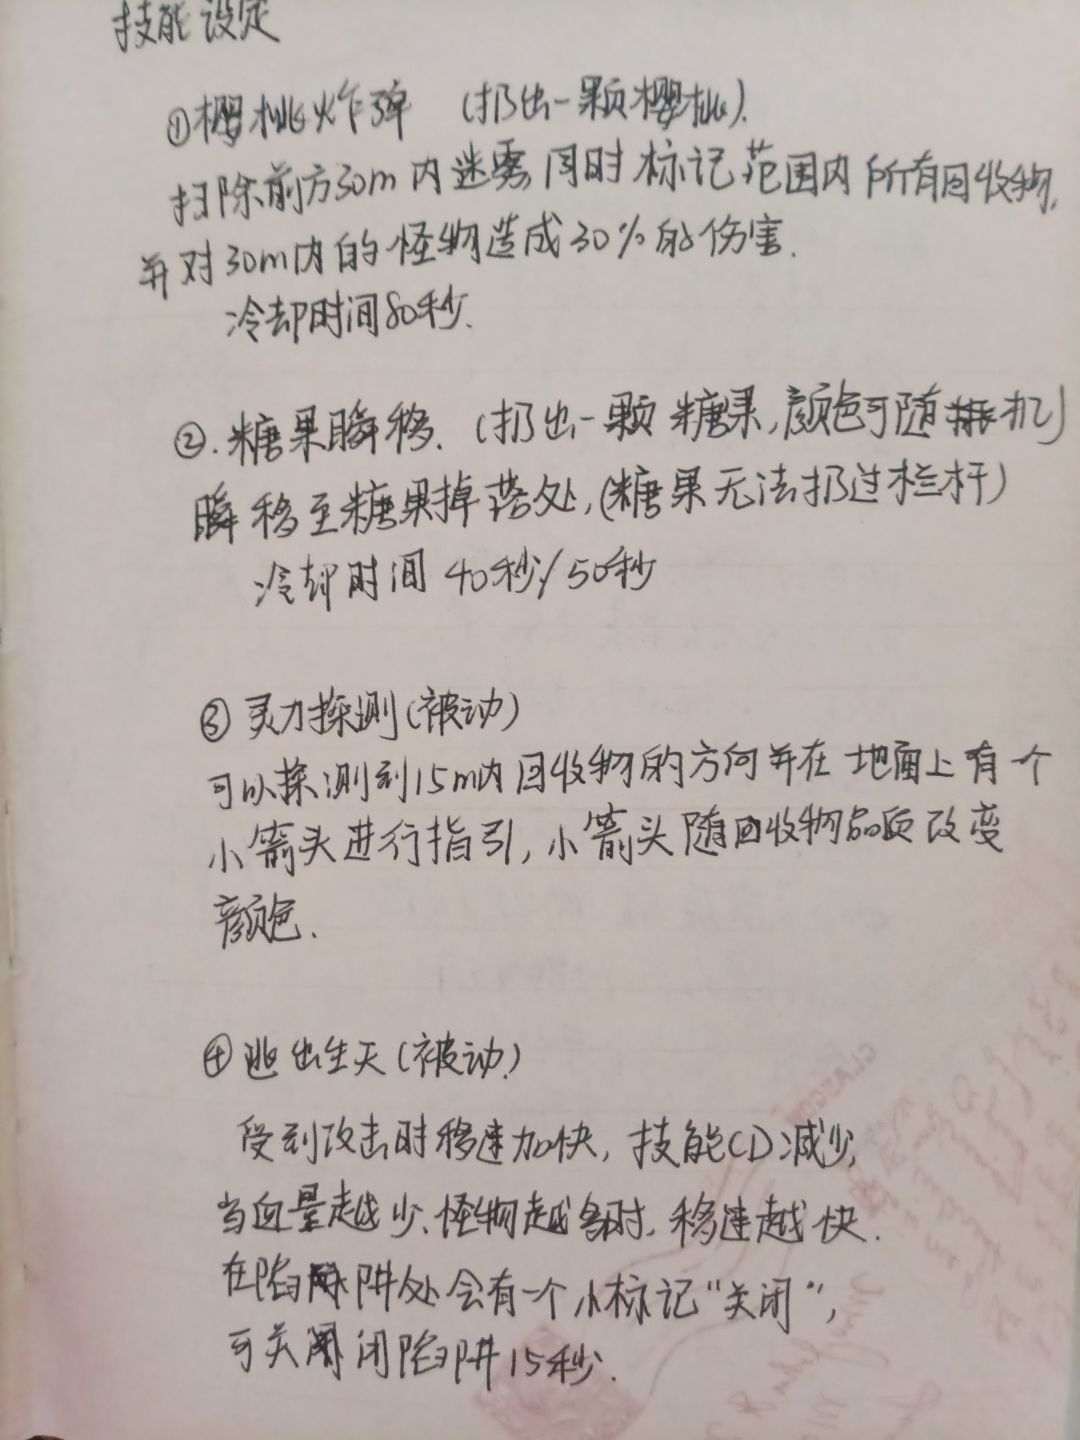 技能设定
①樱桃炸弹 (扔出一颗樱桃).
扫除前方30m内迷雾,同时标记范围内所有回收物,
并对30m内的怪物造成30%的伤害.
冷却时间80秒.
②.糖果瞬移. (扔出一颗糖果,颜色可随机)
瞬移至糖果掉落处,(糖果无法扔过栏杆)
冷却时间 40秒/50秒
③ 灵力探测(被动)
可以探测到15m内回收物的方向并在地面上有一个
小箭头进行指引,小箭头随回收物品质改变
颜色.
④逃出生天(被动)
受到攻击时移速加快,技能CD减少,
当血量越少、怪物越多时,移速越快.
在陷阱处会有一个小标记“关闭”,
可关闭陷阱15秒.